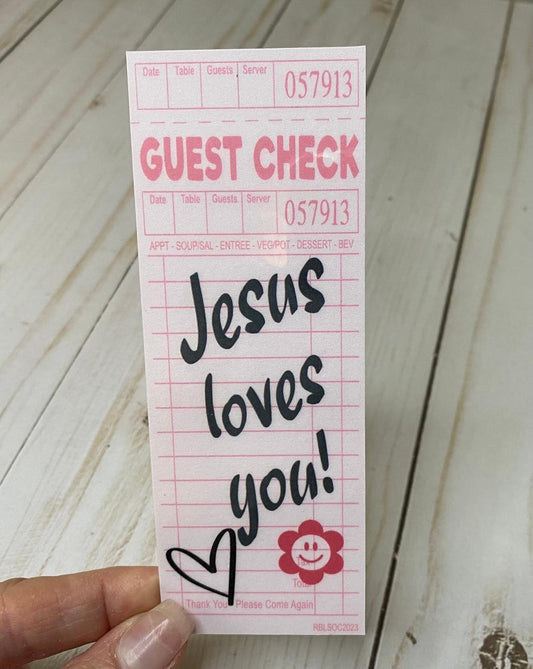 Date Table Guests Server 057913
GUEST CHECK
Date Table Guests Server 057913
APPT - SOUP/SAL - ENTREE - VEG/POT - DESSERT - BEV
Jesus
loves
you!
Thank You Please Come Again
RBLSOC2023